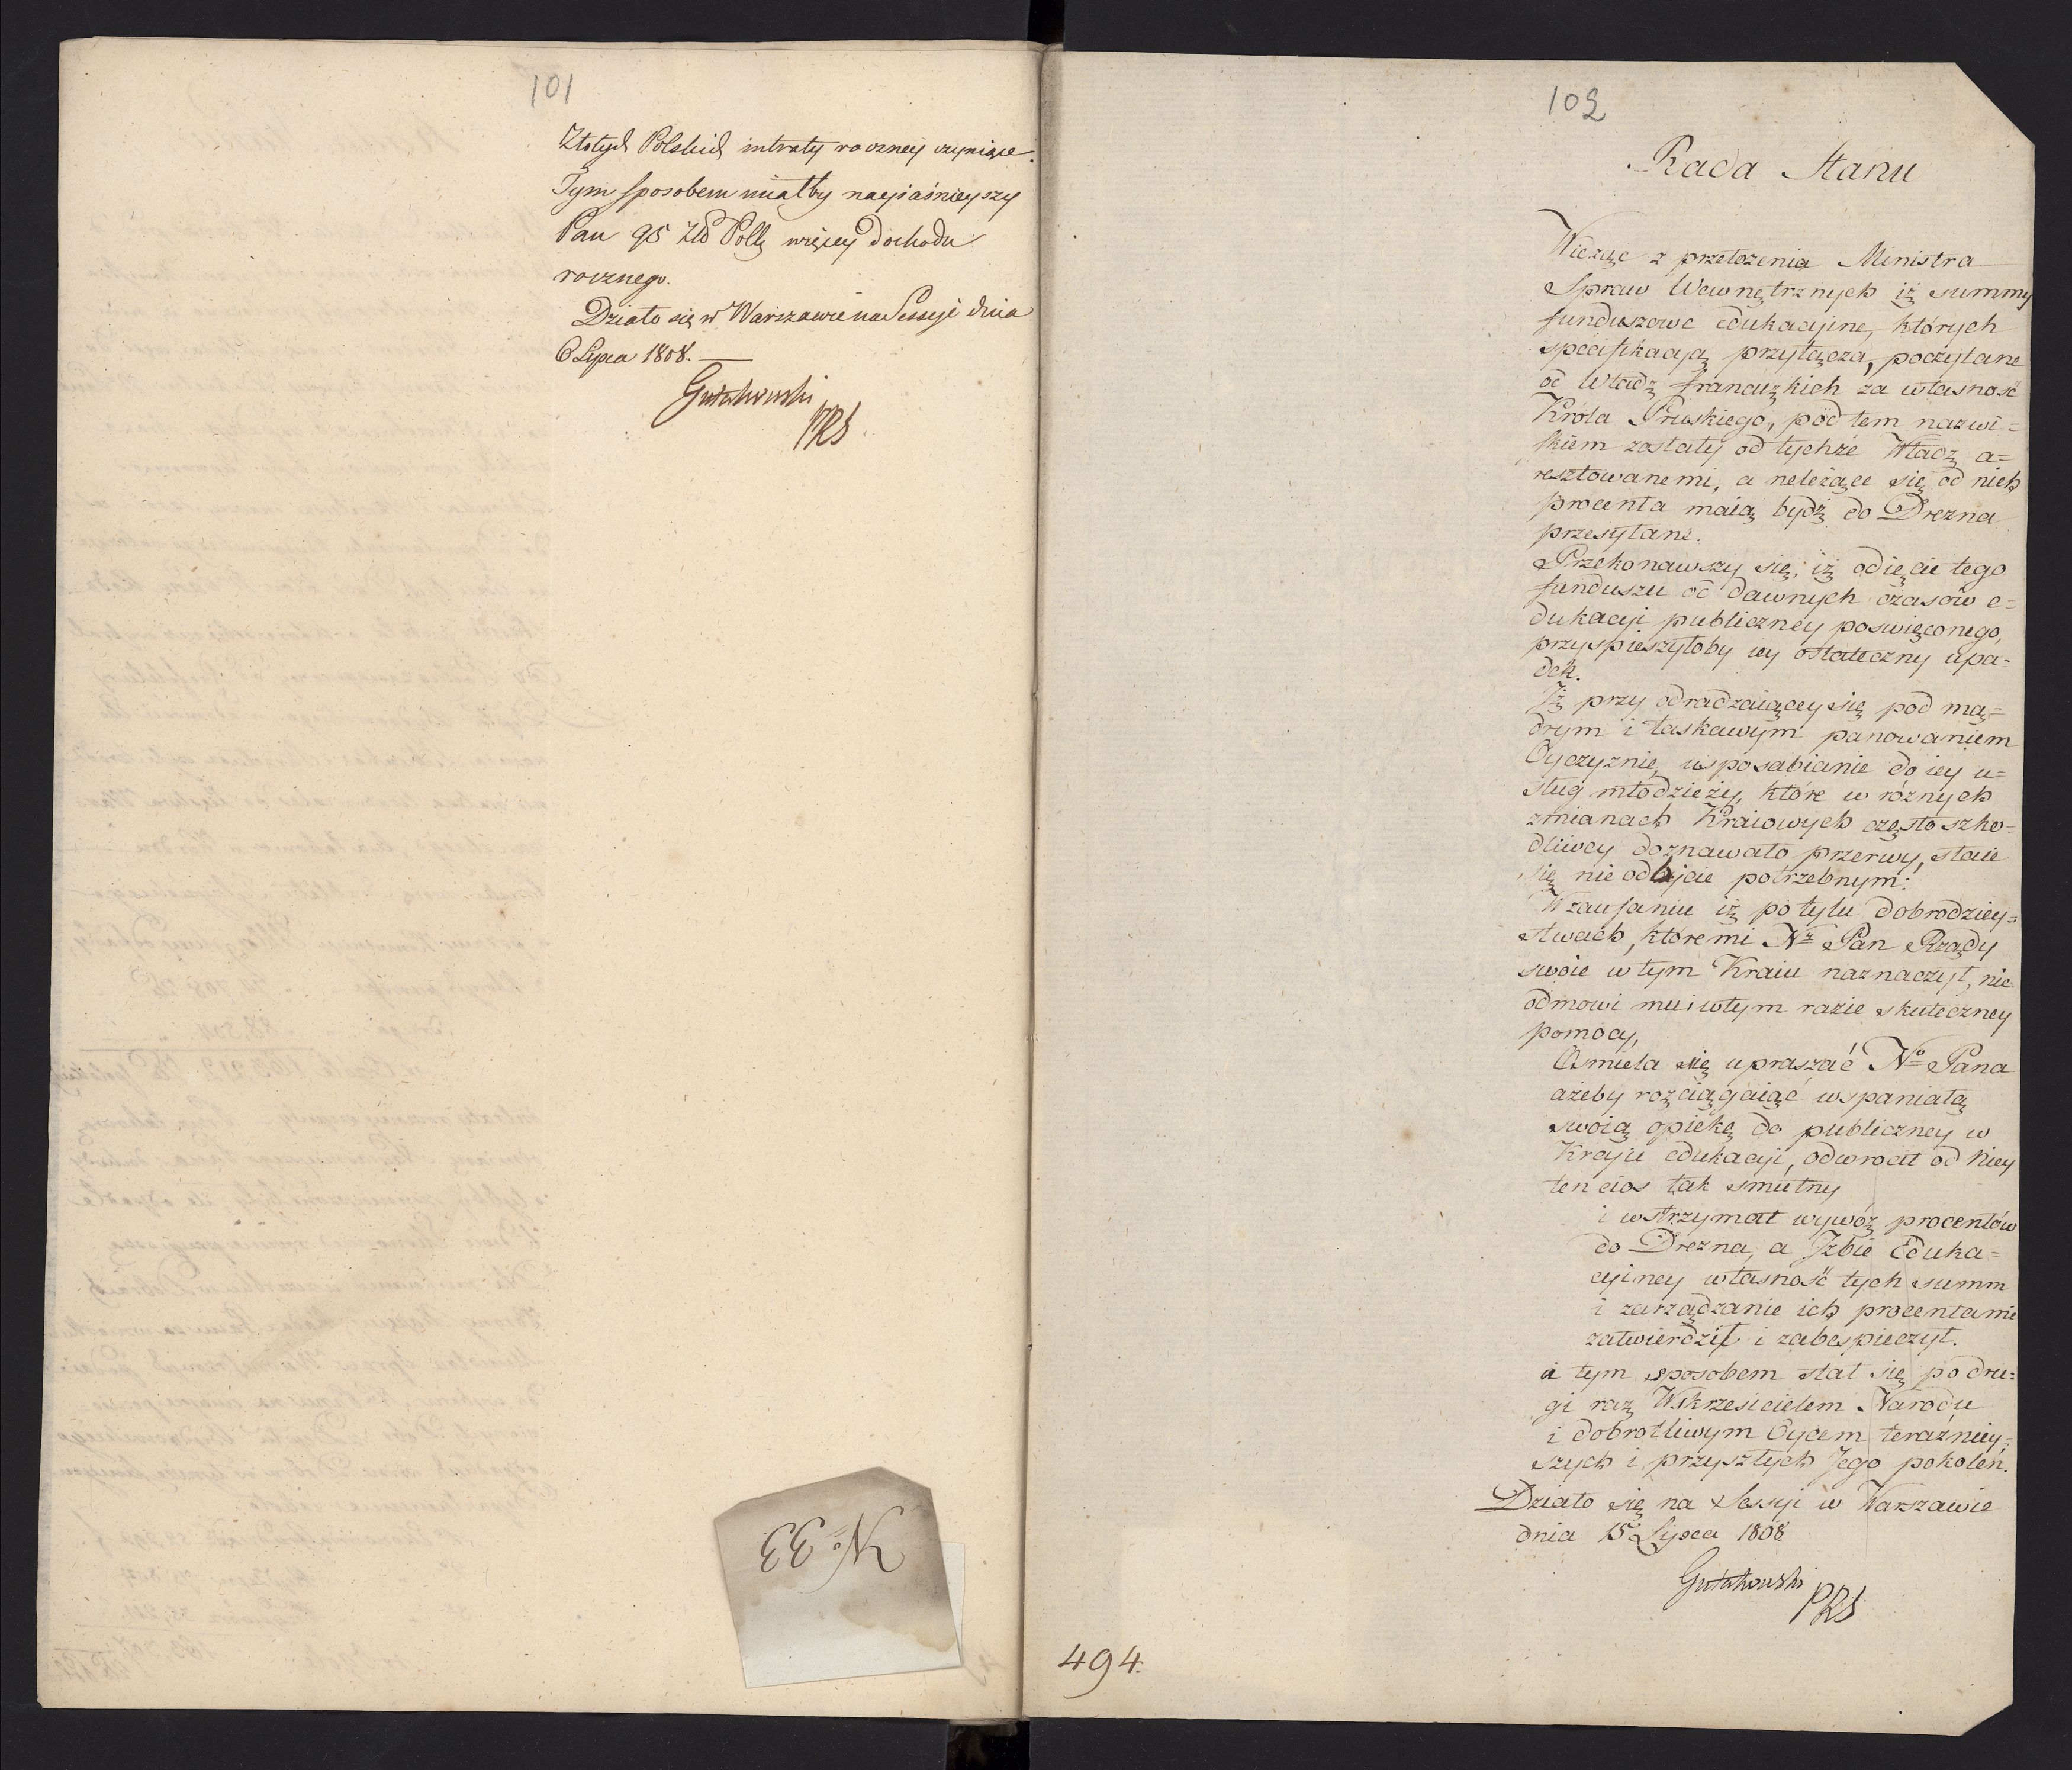 101
Złotych Polskich intraty roczney czyniące.
Tym sposobem miałby nayiaśnieyszy
Pan 95 Zło Polls więcey dochodu
rocznego.
Działo się w Warszawie na Sessyi dnia
6 Lipca 1808.
Gutakowski
PRS
No 33
102
Rada Stanu
Widząc z przełożenia Ministra
Spraw Wewnętrznych iż summy
funduszowe edukacyine, których
specifikacyą przyłącza, poczytane
od Władz francuzkich za własność
Króla Pruskiego, pod tem nazwi=
skiem zostały od tychże Władz a=
resztowanemi, a należące się od nich
procenta maią bydź do Drezna
przesyłane.
Przekonawszy się, iż odięcie tego
funduszu od dawnych czasów e=
dukacyi publiczney poswięconego,
przyspieszyłoby iey ostateczny upa=
dek.
Iż przy odradzaiącey się pod mą=
drym i łaskawym panowaniem
Oyczyznie, usposabianie do iey u=
sług młodzieży, które w róznych
zmianach Kraiowych często szko=
dliwey doznawało przerwy, staie
się nie odbicie potrzebnym:
W zaufaniu iż po tylu dobrodziey=
stwach, któremi Nż Pan Rządy
swoie w tym Kraiu naznaczył, nie
odmowi mu i w tym razie skuteczney
pomocy,
Osmiela się upraszać No Pana
ażeby rozciągaiąc wspaniałą
swoią opiekę do publiczney w
Kraju edukacyi, odwrocił od Niey
ten cios tak smutny
i wstrzymał wywóz procentów
do Drezna, a Izbie Eduka=
cyiney własność tych summ
i zarządzanie ich procentami
zatwierdził i zabespieczył.
a tym sposobem stał się po dru=
gi raz Wskrzesicielem Narodu
i dobrotliwym Oycem teraźniey=
szych i przyszłych Jego pokoleń.
Działo się na Sessyi w Warszawie
dnia 15 Lipca 1808
Gutakowski
PRS
494.